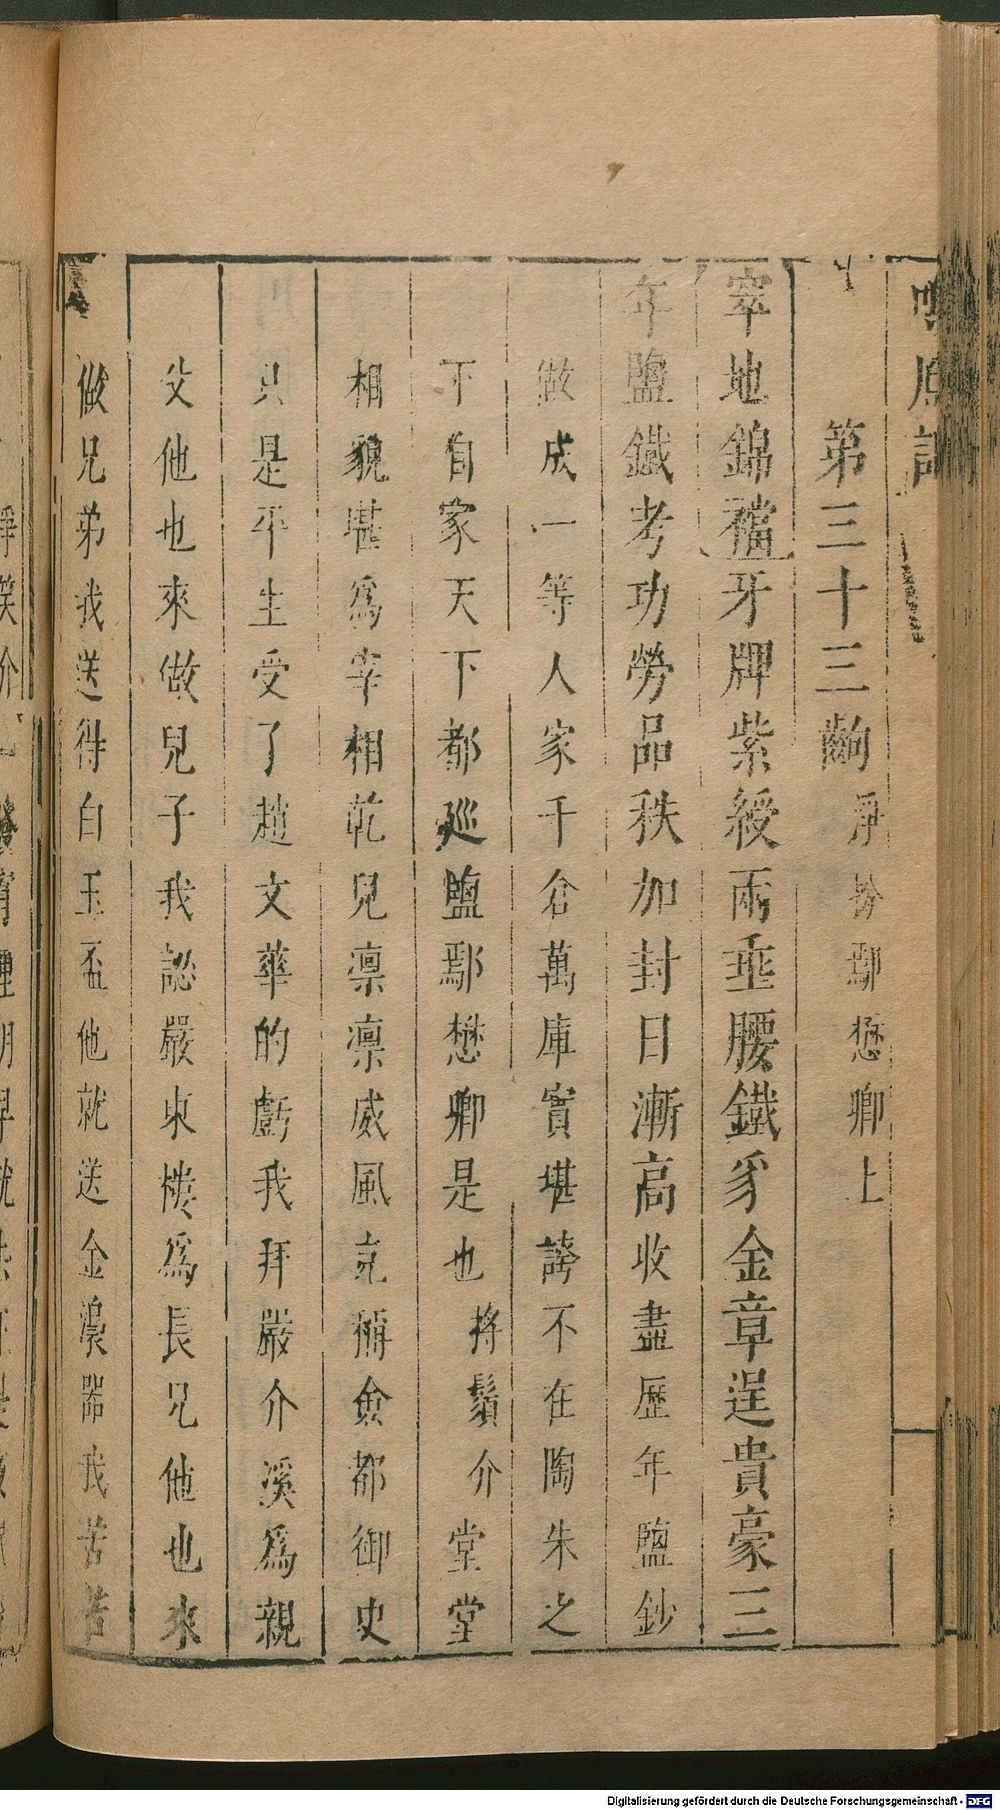 第三十三齣 淨扮鄢懋卿上
窣地錦襠牙牌紫綬兩垂腰鐵豸金章逞貴豪三
年鹽鐵考功勞品秩加封日漸高收盡歷年鹽鈔
做成一等人家千倉萬庫實堪誇不在陶朱之
下自家天下都巡鹽鄢懋卿是也捋鬚介堂堂
相貌堪爲宰相乾兒凛凛威風克稱僉都御史
只是平生受了趙文華的虧我拜嚴介溪爲親
父他也來做兒子我認嚴東樓爲長兄他也來
做兄弟我送得白玉盃他就送金溺器我苦苦
Digitalisierung gefördert durch die Deutsche Forschungsgemeinschaft - DFG